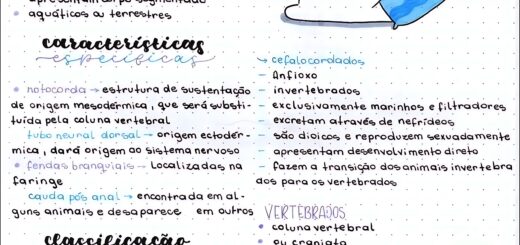 apresentam corpo segmentado
• aquáticos ou terrestres
características
específicas
• notocorda → estrutura de sustentação
de origem mesodérmica, que será substi-
tuída pela coluna vertebral
tubo neural dorsal → origem ectodér-
mica, dará origem ao sistema nervoso
• fendas branquiais → localizadas na
faringe
cauda pós anal → encontrada em al-
guns animais e desaparece em outros
classificação
↪ cefalocordados
- Anfioxo
- invertebrados
- exclusivamente marinhos e filtradores
- excretam através de nefrídeos
- são dioicos e reproduzem sexuadamente
apresentam desenvolvimento direto
- fazem a transição dos animais invertebra
dos para os vertebrados
VERTEBRADOS
• coluna vertebral
• ou craniata